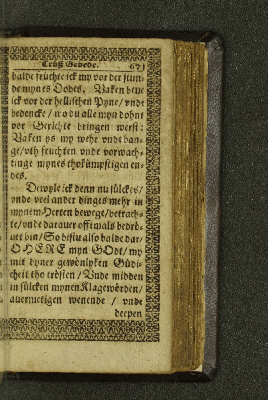 Crütz Gebede. 671
balde früchte ick my vor der stun-
de mynes Dodes. Vaken beue
ick vor der hellischen Pyne / vnde
bedencke / wo du alle myn dohnt
vor Gerichte bringen werst:
Vaken ys my wehr vnde ban-
ge / vth fruchten vnde vorwach-
tinge mynes thokümpstigen en-
des.
Dewyle ick denn nu sülckes /
vnde veel ander dinges mehr in
mynem Herten bewege / betrach-
te / vnde darauer offtmals bedrö-
uet bin / So bistu also balde dar /
O HERE myn GOdt / my
mit dyner gewönlyken Güdi-
cheit tho trösten / Vnde midden
in sülcken mynen Klagewörden /
auermetigen wenende / vnde
deepen